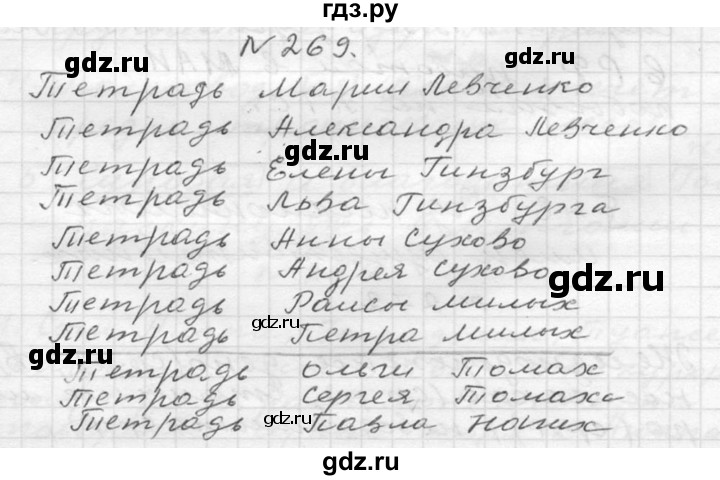 гдз.ру
N 269.
gdz.ru
gdz.ru
Тетрадь Марии Левченко
Тетрадь Александра Левченко
gdz.ru
Тетрадь Елены Гинзбург
Тетрадь Льва Гинзбурга
Тетрадь Анны Сухово
Тетрадь Андрея Сухово
gdz.ru
Тетрадь Раисы Милых
gdz.ru
Тетрадь Петра Милых
gdz.ru
Тетрадь Ольги Томах
Тетрадь Сергея Томаха
gdz.ru
Тетрадь Павла
gdz.ru